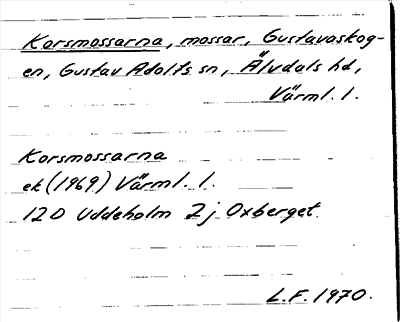 Korsmossarna, mossar, Gustavaskog-
en, Gustav Adolfs sn, Älvdals hd,
Värml. l.
Korsmossarna
ek (1969) Värml. l.
12D Uddeholm 2j Oxberget
L.F. 1970.